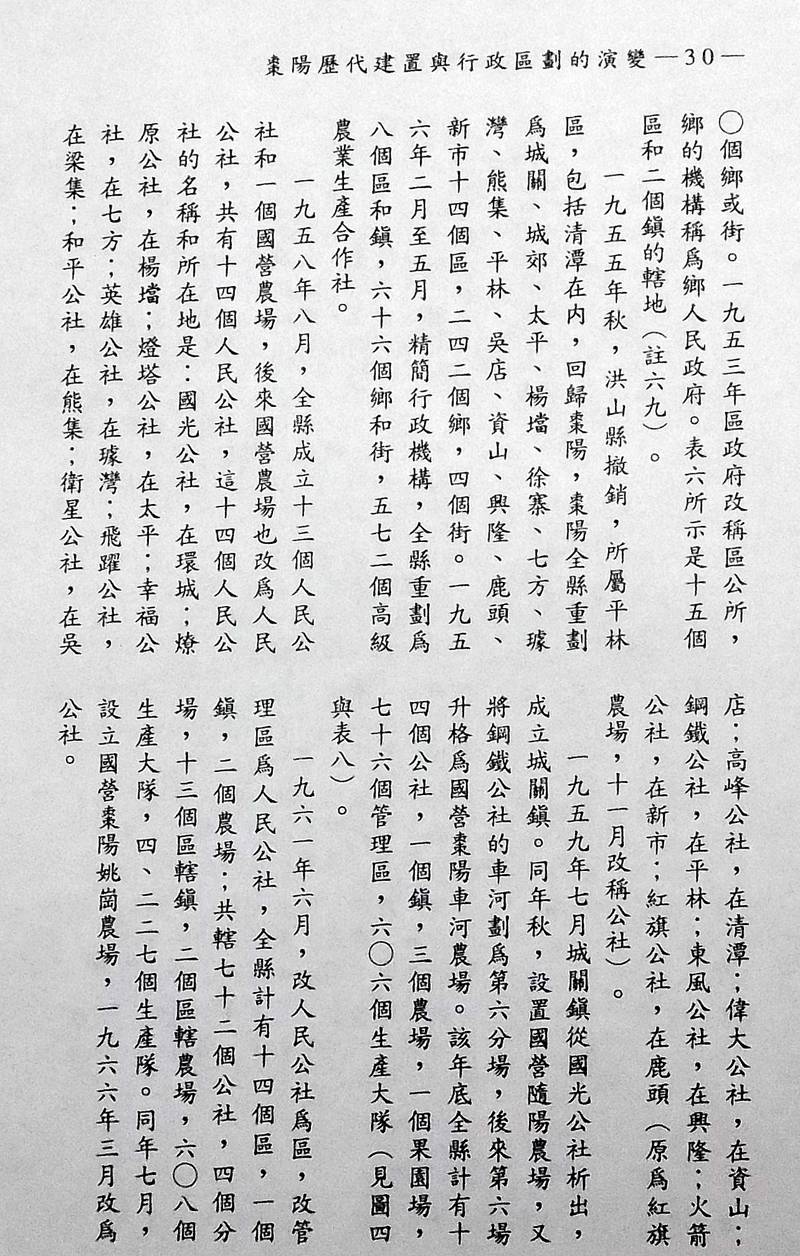 棗陽歷代建置與行政區劃的演變—30—
〇個鄉或街。一九五三年區政府改稱區公所，
鄉的機構稱爲鄉人民政府。表六所示是十五個
區和二個鎮的轄地（註六九）。
一九五五年秋，洪山縣撤銷，所屬平林
區，包括清潭在内，回歸棗陽，棗陽全縣重劃
爲城關、城郊、太平、楊壋、徐寨、七方、璩
灣、熊集、平林、吳店、資山、興隆、鹿頭、
新市十四個區，二四二個鄉，四個街。一九五
六年二月至五月，精簡行政機構，全縣重劃爲
八個區和鎮，六十六個鄉和街，五七二個高級
農業生產合作社。
一九五八年八月，全縣成立十三個人民公
社和一個國營農場，後來國營農場也改爲人民
公社，共有十四個人民公社，這十四個人民公
社的名稱和所在地是：國光公社，在環城；燎
原公社，在楊壋；燈塔公社，在太平；幸福公
社，在七方；英雄公社，在璩灣；飛躍公社，
在梁集；和平公社，在熊集；衛星公社，在吳
店；高峰公社，在清潭；偉大公社，在資山；
鋼鐵公社，在平林；東風公社，在興隆；火箭
公社，在新市；紅旗公社，在鹿頭（原爲紅旗
農場，十一月改稱公社）。
一九五九年七月城關鎮從國光公社析出，
成立城關鎮。同年秋，設置國營隨陽農場，又
將鋼鐵公社的車河劃爲第六分場，後來第六場
升格爲國營棗陽車河農場。該年底全縣計有十
四個公社，一個鎮，三個農場，一個果園場，
七十六個管理區，六〇六個生產大隊（見圖四
與表八）。
一九六一年六月，改人民公社爲區，改管
理區爲人民公社，全縣計有十四個區，一個
鎮，二個農場；共轄七十二個公社，四個分
場，十三個區轄鎮，二個區轄農場，六〇八個
生產大隊，四、二二七個生產隊。同年七月，
設立國營棗陽姚崗農場，一九六六年三月改爲
公社。